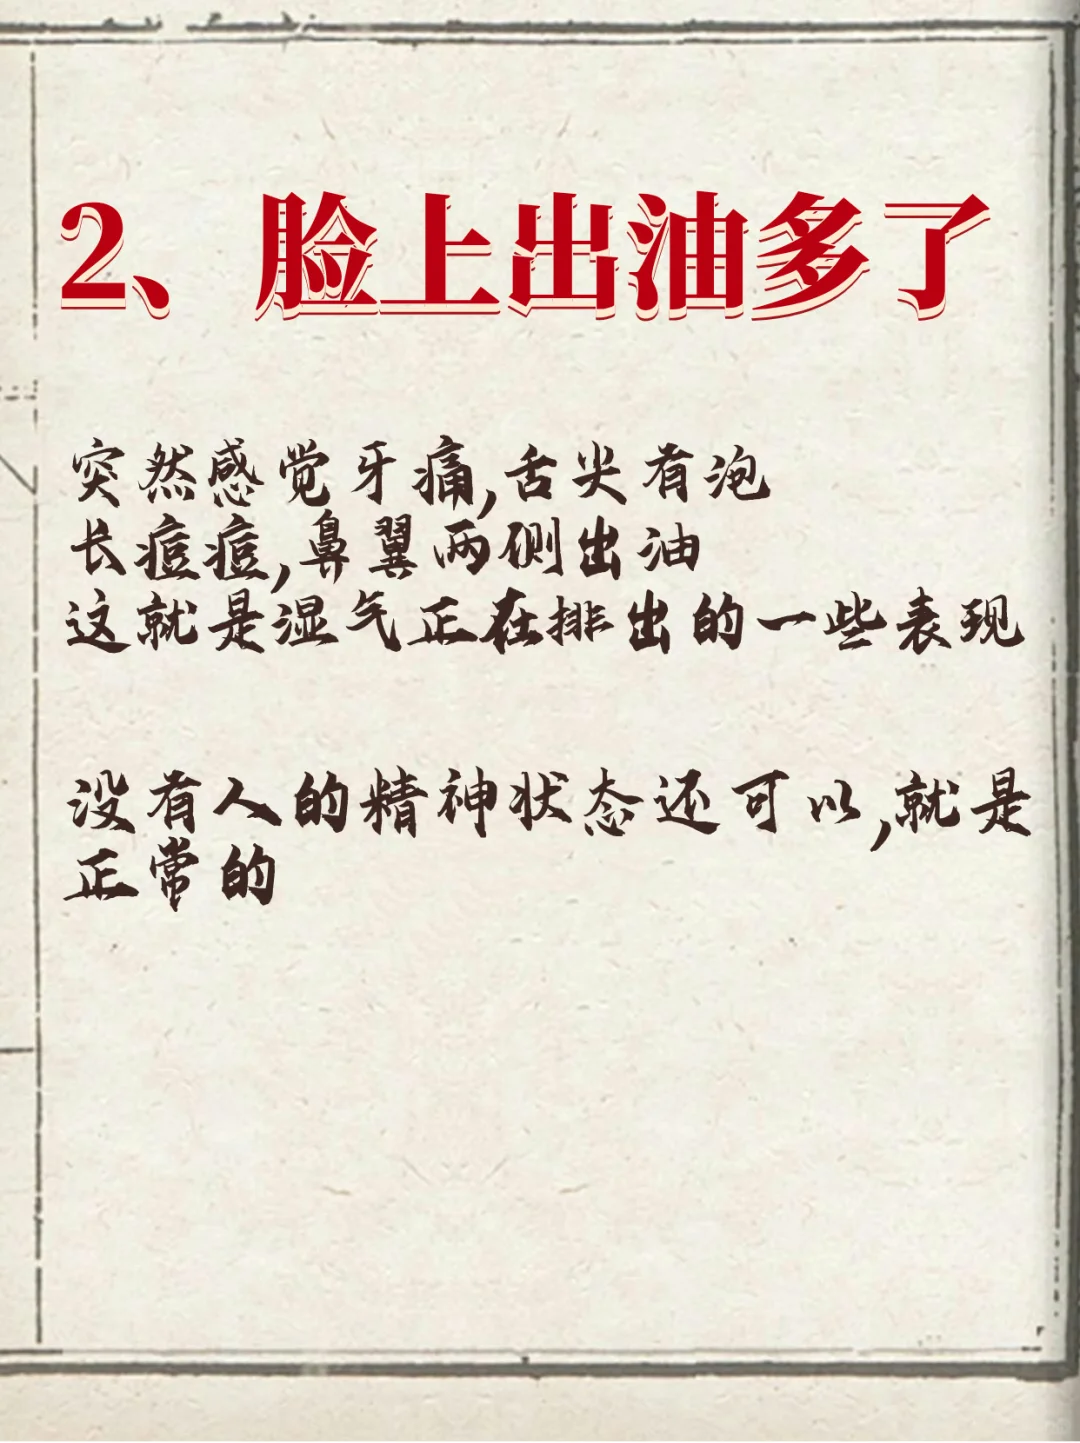 2、脸上出油多了
突然感觉牙痛,舌尖有泡
长痘痘,鼻翼两侧出油
这就是湿气正在排出的一些表现
没有人的精神状态还可以,就是
正常的